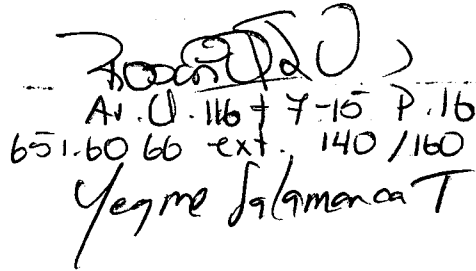 Av. Cl. 116 # 7-15 P.16
651.60 66 ext. 140/160
Yeqme Salamanca T